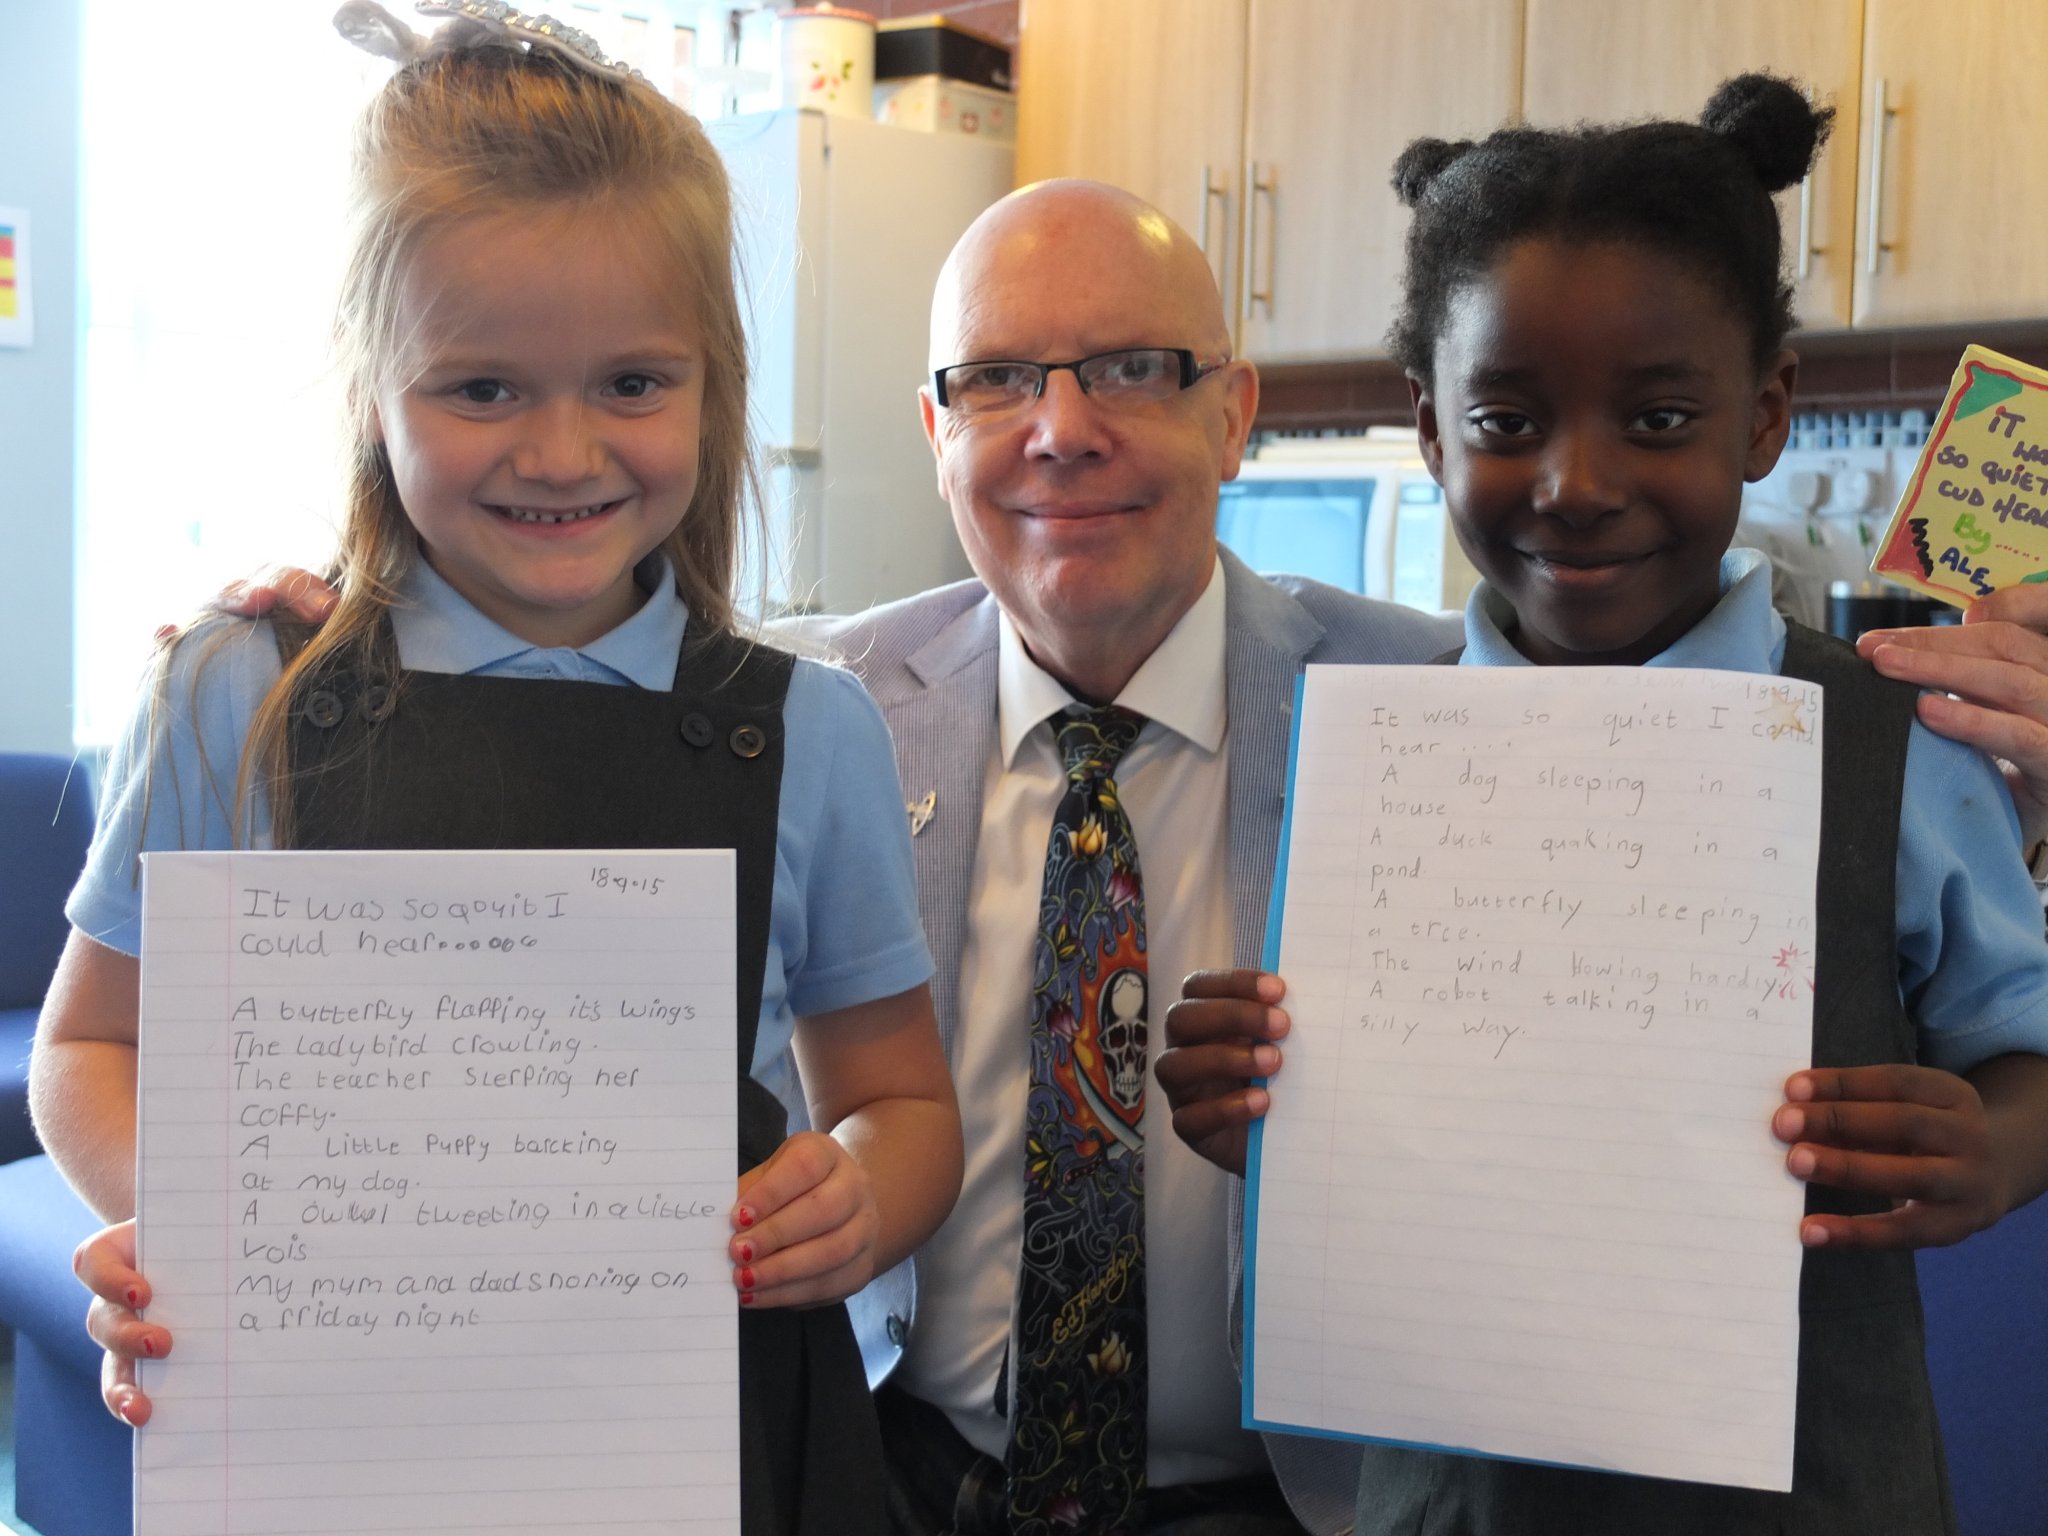 18.9.15
It was so qouit I
could hear.......
A butterfly flapping it's wings
The ladybird crowling.
The teacher slerping her
coffy.
A little puppy barcking
at my dog.
A owl tweeting in a little
vois
My mum and dad snoring on
a friday night
18.9.15
It was so quiet I could
hear ....
A dog sleeping in a
house
A duck quaking in a
pond.
A butterfly sleeping in
a tree.
The wind blowing hardly.
A robot talking in a
silly way.
iT
SO QUIET
CUD HEAR
By......
ALEX
Ed Hardy